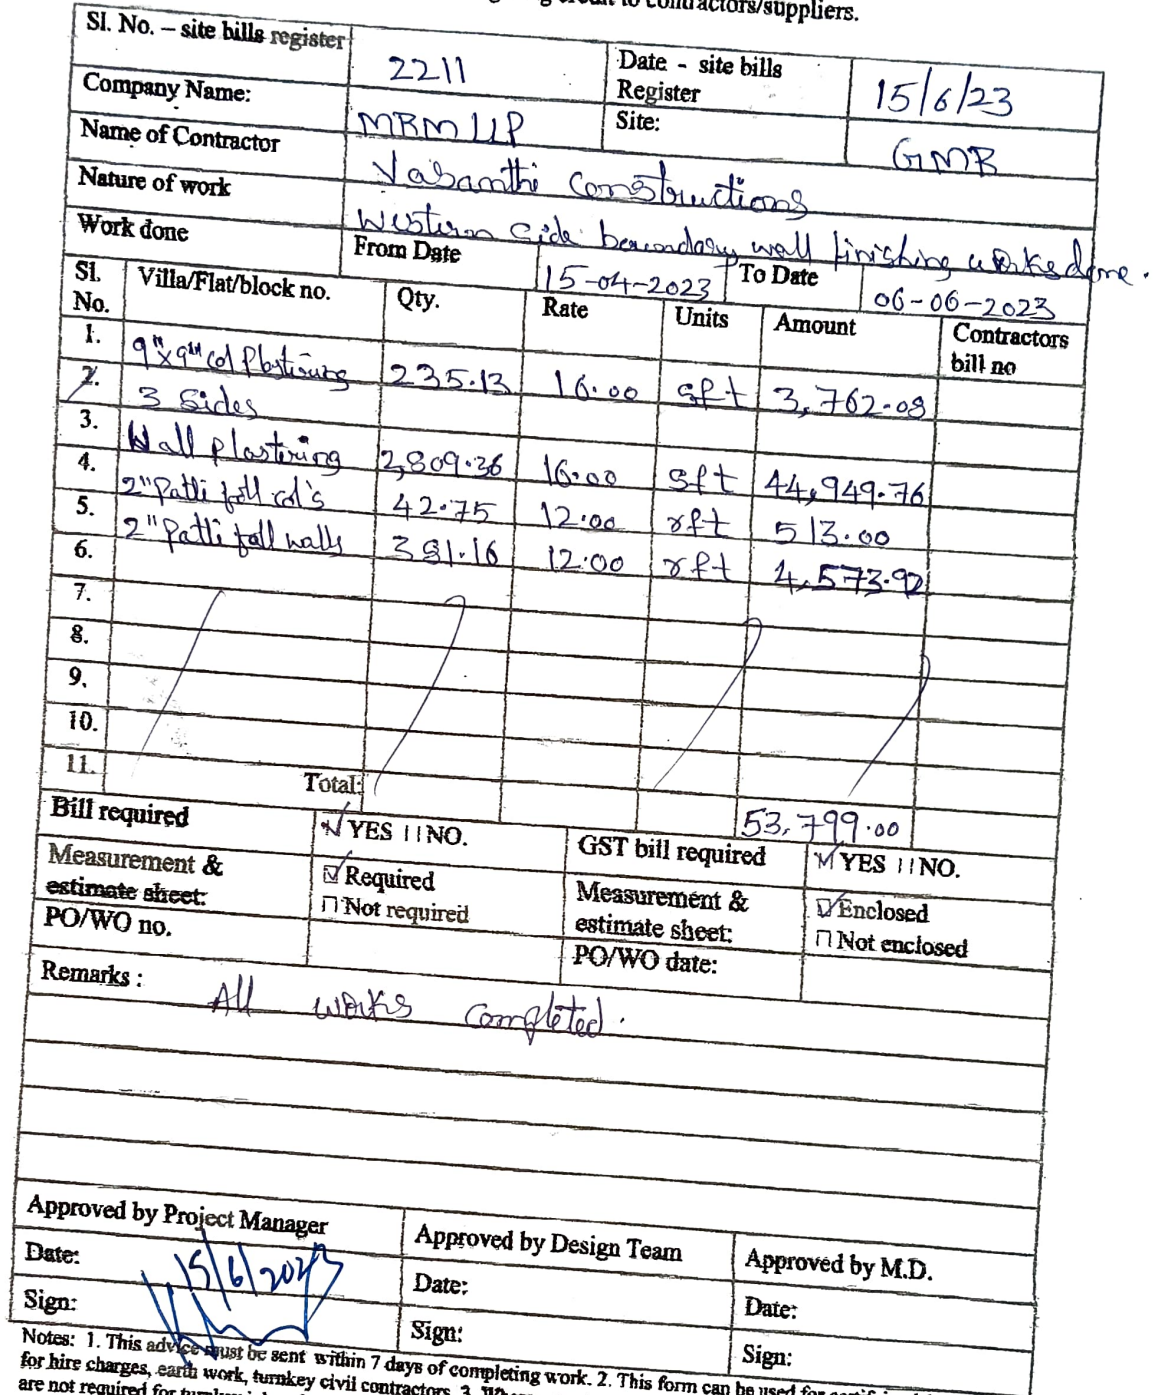 contractors/suppliers.
Sl. No. – site bills register 2211 Date - site bills Register 15/6/23
Company Name: MRM LLP Site: GMR
Name of Contractor Vasanthi Constructions
Nature of work Western side boundary wall finishing works done.
Work done From Date 15-04-2023 To Date 06-06-2023
Sl. No. Villa/Flat/block no. Qty. Rate Units Amount Contractors bill no
1. 9"x9" col Plastering 235.13 16.00 sft 3,762.08
2. 3 sides
3. Wall plastering 2,809.36 16.00 sft 44,949.76
4. 2" Patti for col's 42.75 12.00 rft 513.00
5. 2" Patti for walls 381.16 12.00 rft 4,573.92
6.
7.
8.
9.
10.
11.
Total: 53,799.00
Bill required YES NO. GST bill required YES NO.
Measurement & estimate sheet: Required Not required Measurement & estimate sheet: Enclosed Not enclosed
PO/WO no. PO/WO date:
Remarks : All works completed.
Approved by Project Manager Approved by Design Team Approved by M.D.
Date: 15/6/2023 Date: Date:
Sign: Sign: Sign:
Notes: 1. This advice must be sent within 7 days of completing work. 2. This form can be used for
for hire charges, earth work, turnkey civil contractors. 3.
are not required for